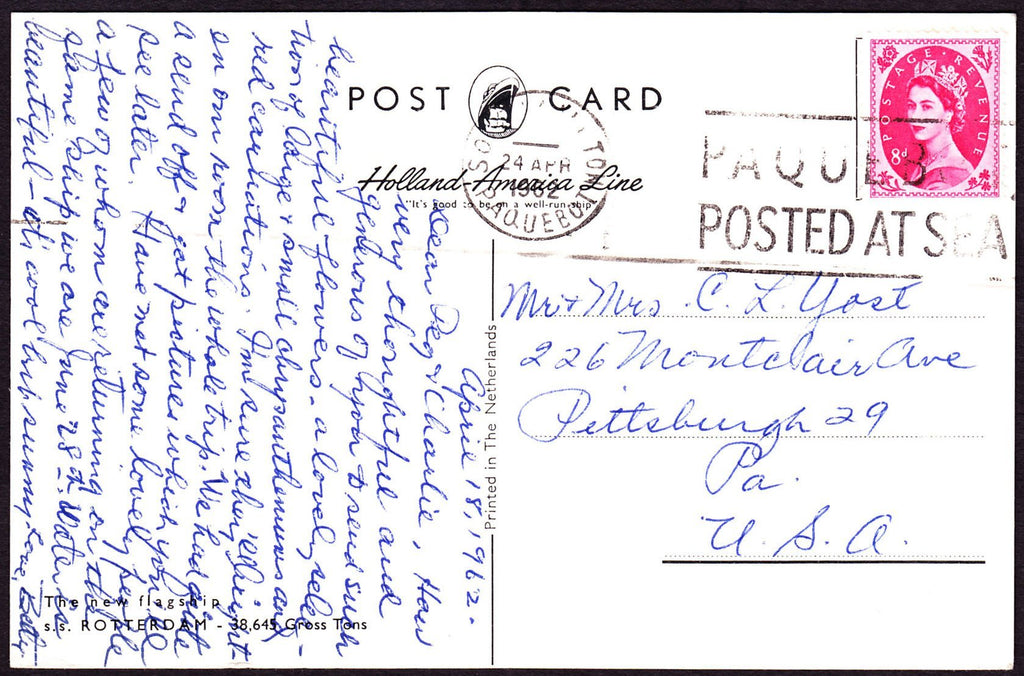 POST CARD
Holland-America Line
"It's good to be on a well-run ship"
24 APR
1962
PAQUEBOT
POSTAGE REVENUE
8d
PAQUEB
POSTED AT SEA
April 18, 1962.
Dear Peg & Charlie, How
very thoughtful and
generous of you to send such
beautiful flowers - a lovely selec-
tion of large & small chrysanthemums and
red carnations. I'm sure they'll bright-
en our room the whole trip. We had quite
a send off & got pictures which you'll
see later. Have met some lovely people
a few of whom are returning on the
same ship we are June 28th. Water is
beautiful - cool but sunny. Love, Betty
The new flagship
s.s. ROTTERDAM - 38,645 Gross Tons
Printed in The Netherlands
Mr & Mrs. C. L. Yost
226 Montclair Ave
Pittsburgh 29
Pa.
U. S. A.